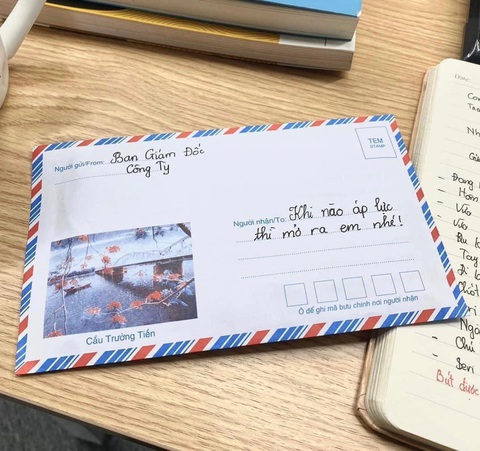 Người gửi/From: Ban Giám Đốc
Công Ty
TEM
STAMP
Người nhận/To: Khi nào áp lực
thì mở ra em nhé!
Ô để ghi mã bưu chính nơi người nhận
Cầu Trường Tiền
Date
Nh
- Hơn
- Vào
- Vào
Tay
- Ngà
- Chu
- Seri
Bút được